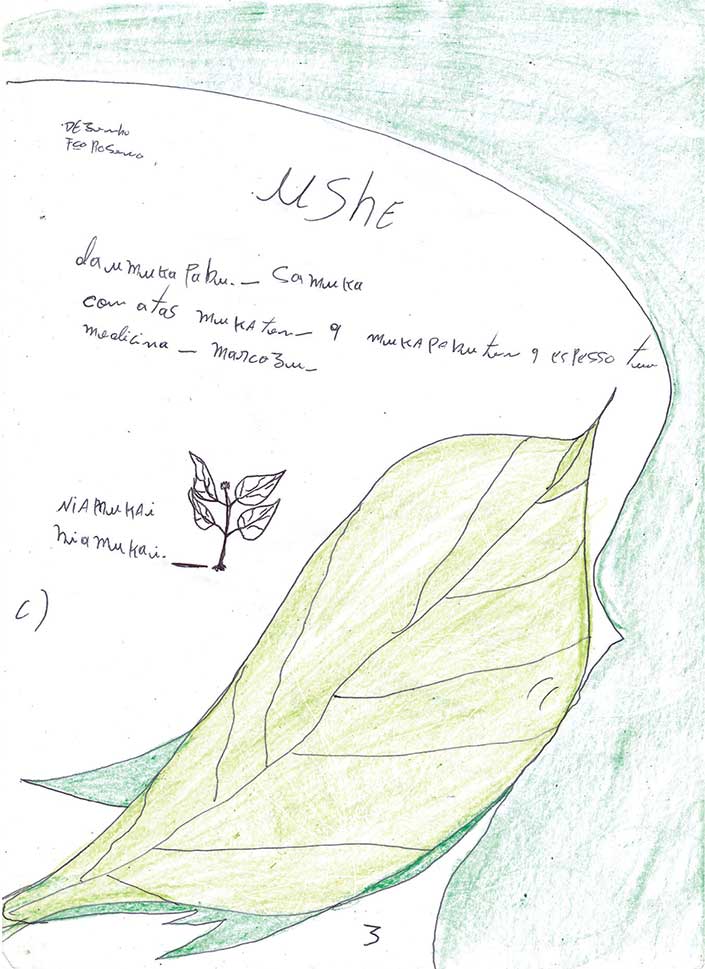 DESenho
Fco Roseno
USHE
daumukapabu._ Samuka
com atas mukaten_ q mukapabuten q espesso ten
medicina _ marcoBu_
NIAMUKAi
niamukai._
c)
3